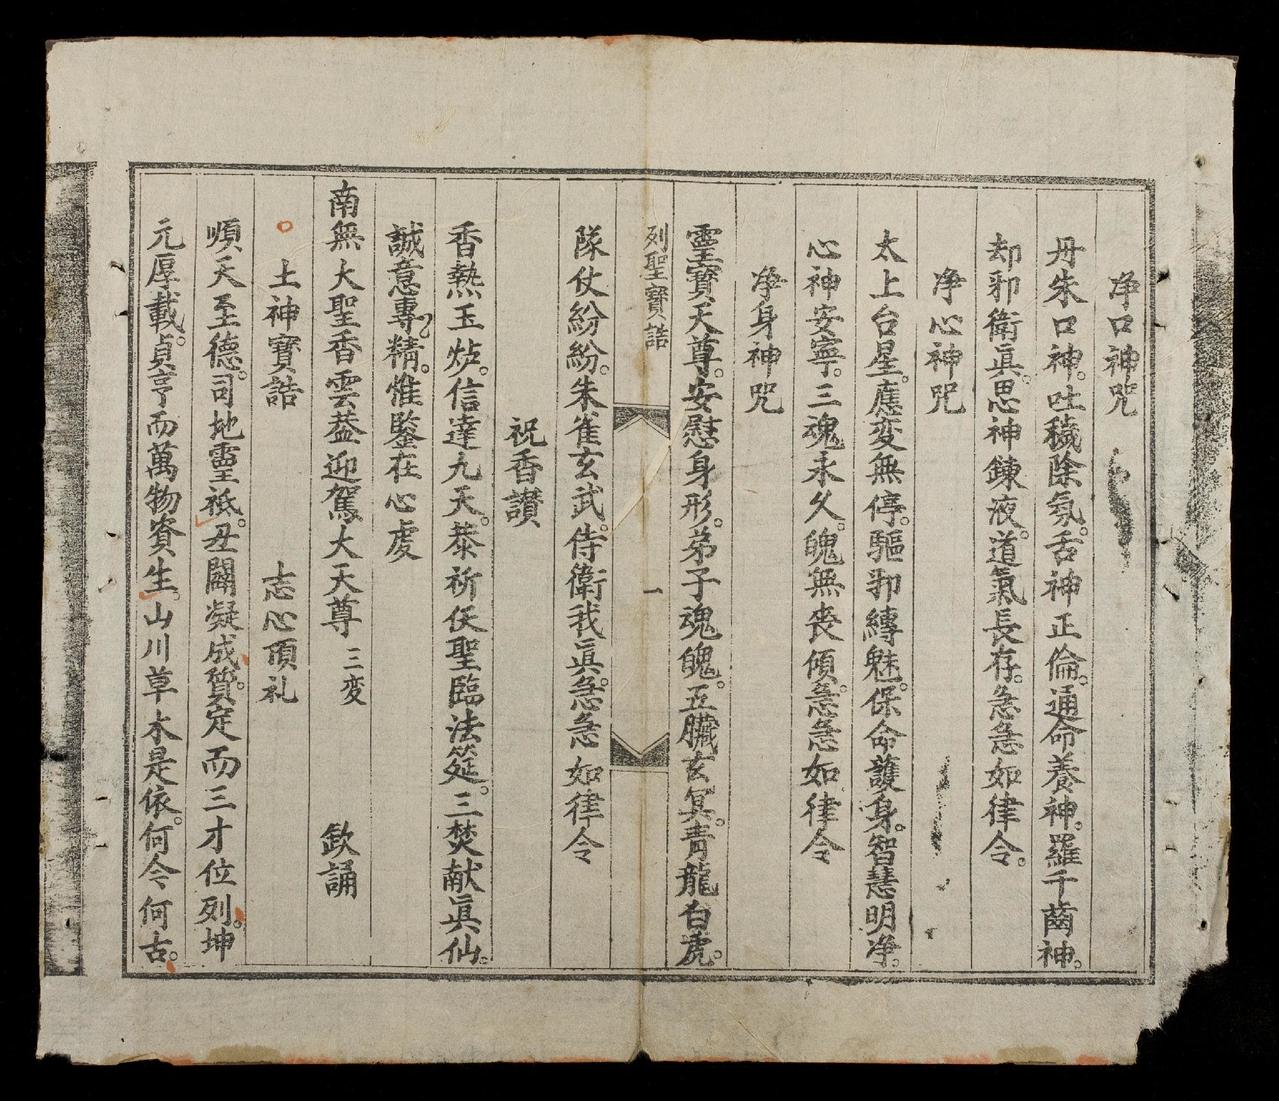 净口神咒
丹朱口神。吐穢除氛。舌神正倫。通命養神。羅千齒神。
却邪衛眞。思神鍊液。道氣長存。急急如律令。
净心神咒
太上台星。應変無停。驅邪縛魅。保命護身。智慧明净。
心神安寧。三魂永久。魄無喪傾。急急如律令
净身神咒
靈寶天尊。安慰身形。弟子魂魄。五臟玄冥。青龍白虎。
列聖寶誥
一
隊仗紛紛。朱雀玄武。侍衛我眞。急急如律令
祝香讃
香熱玉炉。信達九天。恭祈仸聖臨法筵。三焚献眞仙。
誠意專精。惟鑒在心虔
南無大聖香雲葢迎駕大天尊 三変 欽誦
土神寶誥 志心頂礼
順天至德。司地靈祇。丑闢凝成質。定而三才位列。坤
元厚載。貞亨而萬物資生。山川草木是依。何今何古。